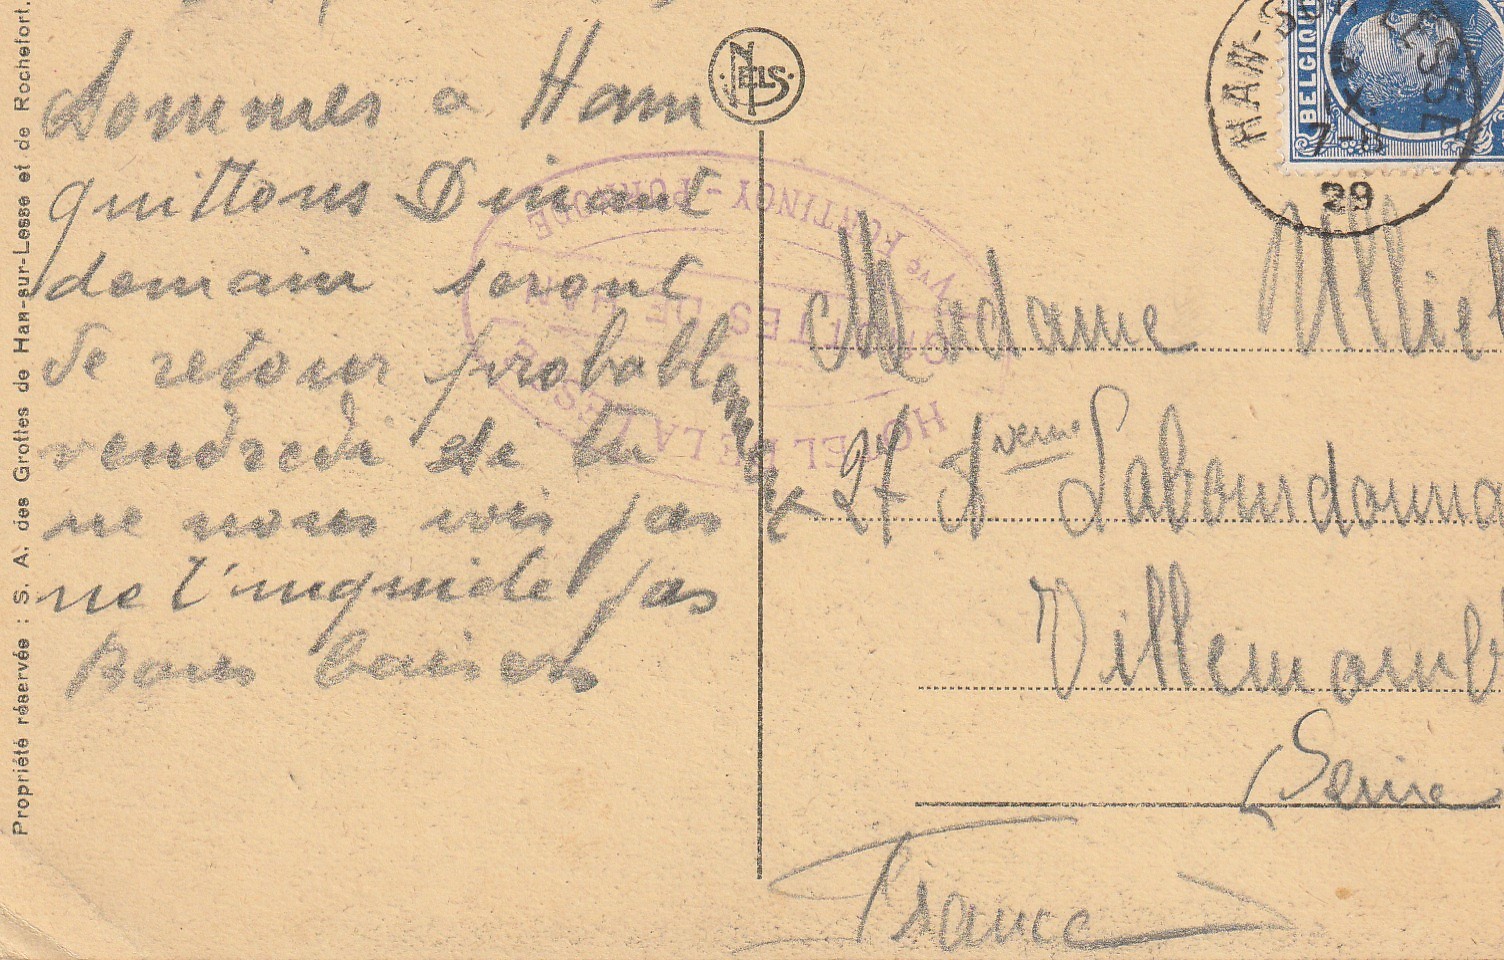 Sommes a Ham
quittons Dinant
demain seront
de retour probablement
vendredi se tu
ne nous vois pas
ne t'inquiete pas
Bons baisers
NELS
HAN-SUR-LESSE
7-8
29
BELGIQUE
Madame
27
Villemomb
Seine
France
HOTEL DE LA LESSE
GROTTES DE HAN
Vve FORTINOY-PORNODE
Propriété réservée : S. A. des Grottes de Han-sur-Lesse et de Rochefort.